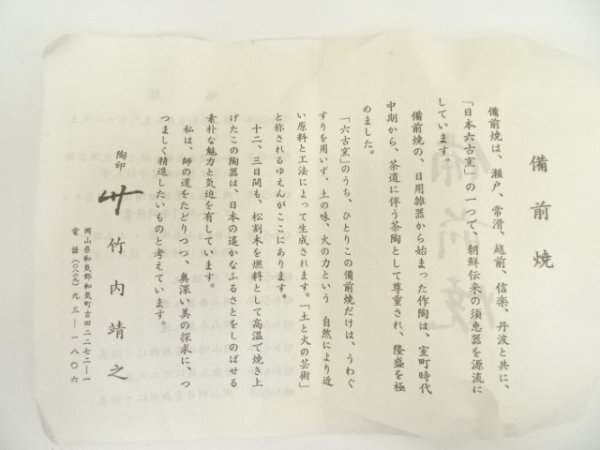 備前焼
備前焼は、瀬戸、常滑、越前、信楽、丹波と共に、
「日本六古窯」の一つで、朝鮮伝来の須恵器を源流に
しています。
備前焼の、日用雑器から始まった作陶は、室町時代
中期から、茶道に伴う茶陶として尊重され、隆盛を極
めました。
「六古窯」のうち、ひとりこの備前焼だけは、うわぐ
すりを用いず、土の味、火の力という 自然により近
い原料と工法によって生成されます。「土と火の芸術」
と称されるゆえんがここにあります。
十二、三日間も、松割木を燃料として高温で焼き上
げたこの陶器は、日本の遥かなふるさとをしのばせる
素朴な魅力と気迫を有しています。
私は、師の道をたどりつつ、奥深い美の探求に、つ
つましく精進したいものと考えています。
陶印
竹内靖之
岡山県和気郡和気町吉田二二七二―一
電話(〇八六九)九三―一八〇六